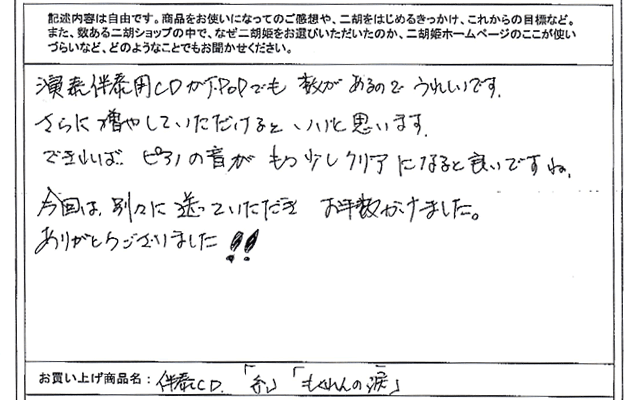 記述内容は自由です。商品をお使いになってのご感想や、二胡をはじめるきっかけ、これからの目標など。
また、数ある二胡ショップの中で、なぜ二胡姫をお選びいただいたのか、二胡姫ホームページのここが使い
づらいなど、どのようなことでもお聞かせください。
演奏伴奏用CDがJ.POPでも数があるのでうれしいです。
さらに増やしていただけるといいと思います。
できれば、ピアノの音がもう少しクリアになると良いですね。
今回は、別々に送っていただきお手数かけました。
ありがとうございました!!
お買い上げ商品名:伴奏CD.「糸」「もくれんの涙」